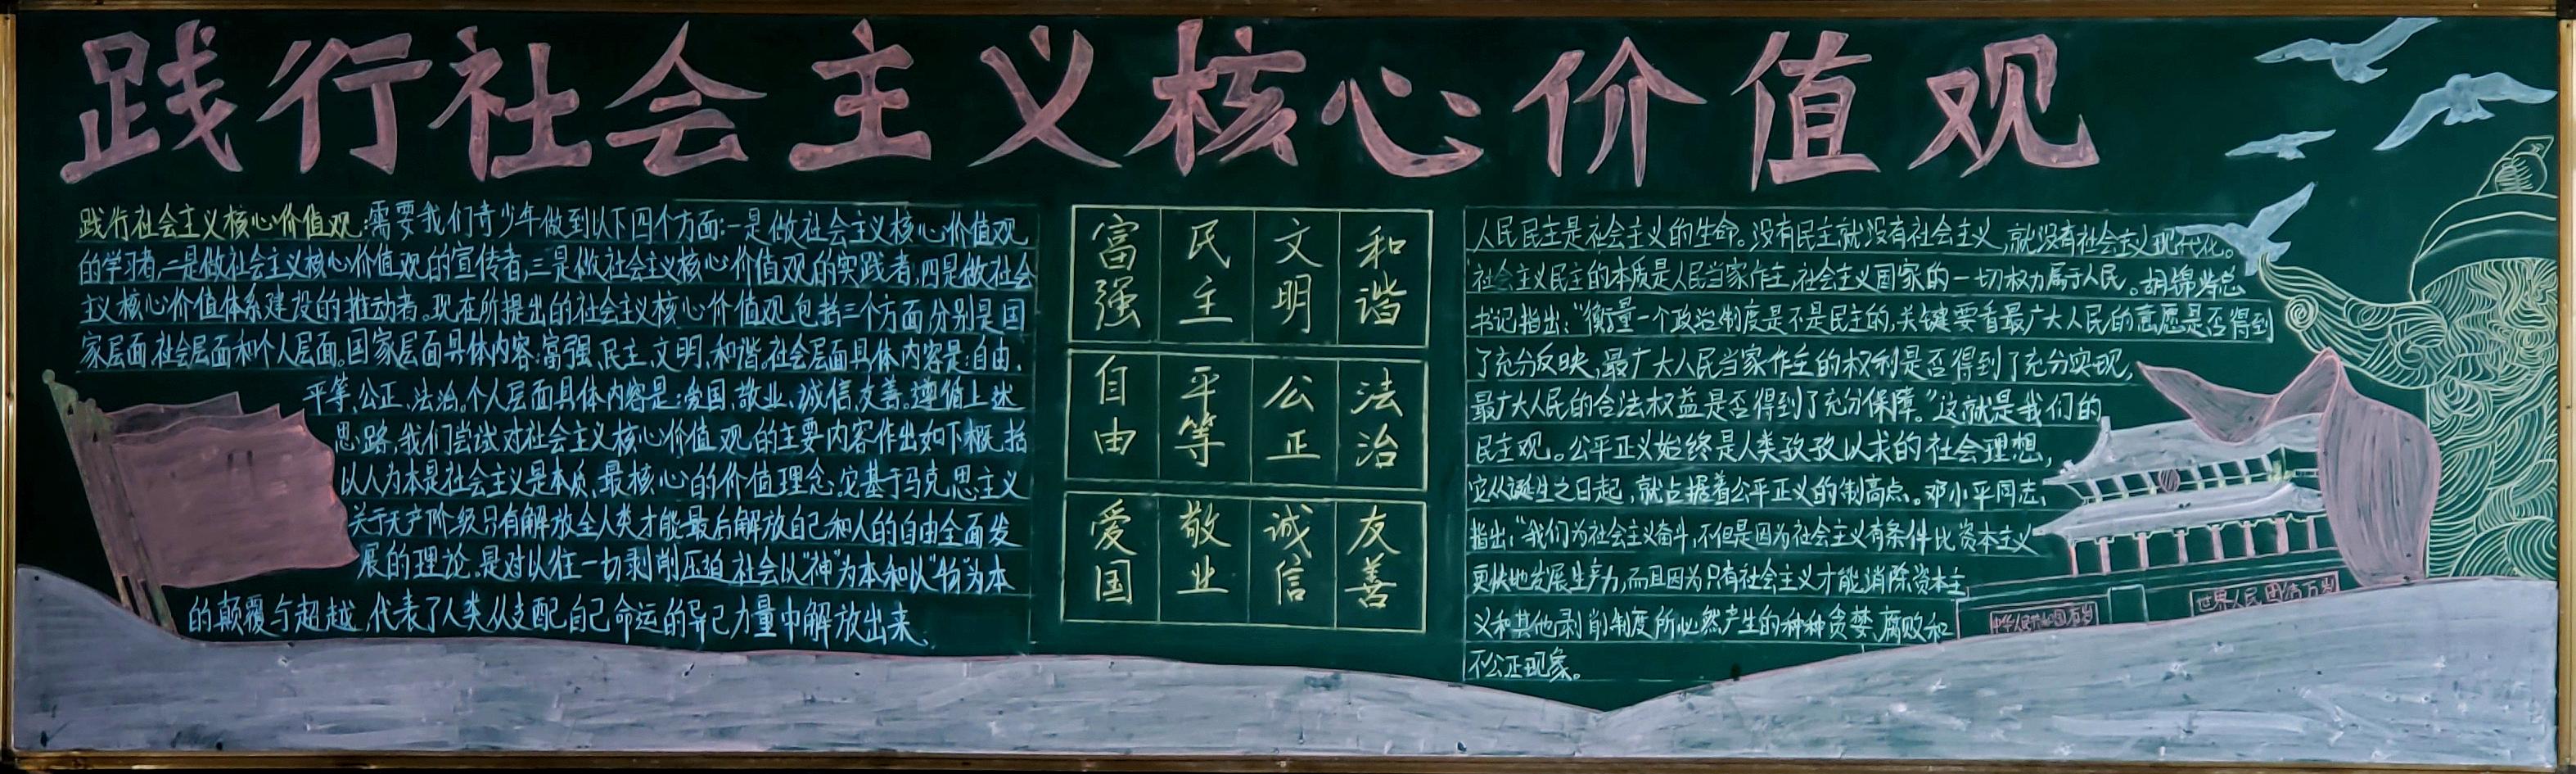 践行社会主义核心价值观
践行社会主义核心价值观:需要我们青少年做到以下四个方面:一是做社会主义核心价值观
的学习者,二是做社会主义核心价值观的宣传者,三是做社会主义核心价值观的实践者,四是做社会
主义核心价值体系建设的推动者。现在所提出的社会主义核心价值观包括三个方面分别是国
家层面,社会层面和个人层面。国家层面具体内容:富强、民主、文明、和谐。社会层面具体内容是:自由、
平等、公正、法治。个人层面具体内容是:爱国、敬业、诚信、友善。遵循上述
思路,我们尝试对社会主义核心价值观的主要内容作出如下概括
以人为本是社会主义是本质、最核心的价值理念。它基于马克思主义
关于无产阶级只有解放全人类才能最后解放自己和人的自由全面发
展的理论,是对以往一切剥削压迫社会以“神”为本和以“物”为本
的颠覆与超越,代表了人类从支配自己命运的异己力量中解放出来。
富强 民主 文明 和谐
自由 平等 公正 法治
爱国 敬业 诚信 友善
人民民主是社会主义的生命。没有民主就没有社会主义,就没有社会主义现代化。
社会主义民主的本质是人民当家作主,社会主义国家的一切权力属于人民。胡锦涛总
书记指出:“衡量一个政治制度是不是民主的,关键要看最广大人民的意愿是否得到
了充分反映,最广大人民当家作主的权利是否得到了充分实现,
最广大人民的合法权益是否得到了充分保障。”这就是我们的
民主观。公平正义始终是人类孜孜以求的社会理想,
它从诞生之日起,就占据着公平正义的制高点。邓小平同志
指出:“我们为社会主义奋斗,不但是因为社会主义有条件比资本主义
更快地发展生产力,而且因为只有社会主义才能消除资本主
义和其他剥削制度所必然产生的种种贪婪、腐败和
不公正现象。
中华人民共和国万岁
世界人民团结万岁